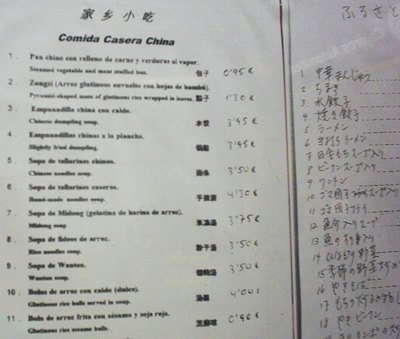 家乡小吃
Comida Casera China
1. Pan chino con relleno de carne y verduras al vapor.
Steamed vegetable and meat stuffed bun. 包子 0'95 €
2. Zongzi (Arroz glutinoso envuelto con hojas de bambú).
Pyramid-shaped mass of glutinous rice wrapped in leaves. 粽子 1'30 €
3. Empanadilla china con caldo.
Chinese dumpling soup. 水饺 3'45 €
4. Empanadillas chinas a la plancha.
Slightly fried dumpling. 锅贴 3'45 €
5. Sopa de tallarines chinos.
Chinese noodles soup. 3'50 €
6. Sopa de tallarines caseros.
Hand-made noodles soup. 4'30 €
7. Sopa de Midong (gelatina de harina de arroz).
Midong soup 米冻汤 3'75 €
8. Sopa de fideos de arroz.
Rice noodles soup. 粉干汤 3'50 €
9. Sopa de Wantun.
Wantun soup. 馄饨汤 3'50 €
10. Bolas de arroz con caldo (dulce).
Glutinous rice balls served in soup. 汤圆 4'00 €
11. Bola de arroz frita con sésamo y soja roja.
Glutinous rice sesame balls. 芝麻球 0'90 €
ふるさと
1 中華まんじゅう
2 ちまき
3 水餃子
4 焼き餃子
5 ラーメン
6 手打ちラーメン
8 ビーフンスープ入り
9 ワンタン
12 魚弁入りスープ
13 魚のすり身入り
16 やきそば
18 やきビーフン